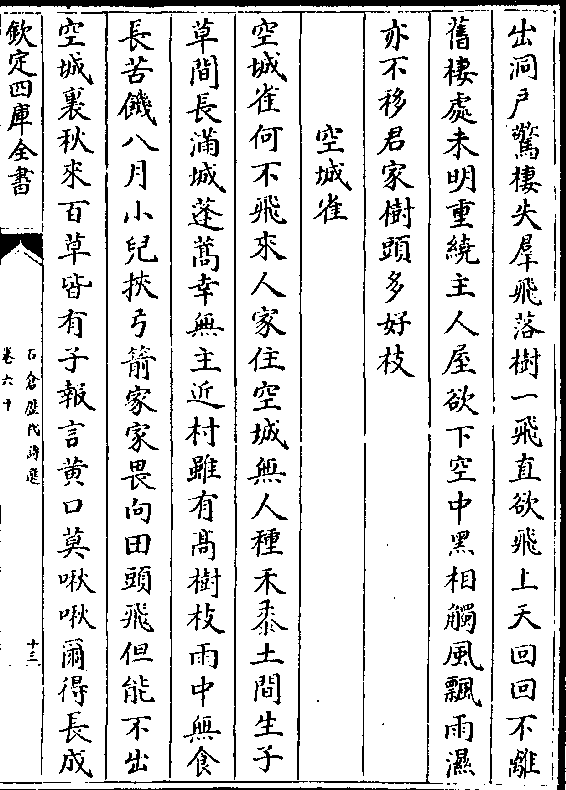 出洞戸驚棲失羣飛落樹一飛直欲飛上天回回不離
舊棲處未明重繞主人屋欲下空中黑相觸風飄雨濕
亦不移君家樹頭多好枝
空城雀
空城雀何不飛來人家住空城無人種禾黍土間生子
草間長滿城蓬蒿幸無主近村雖有髙樹枝雨中無食
長苦饑八月小兒挾弓箭家家畏向田頭飛但能不出
空城裏秋來百草皆有子報言黄口莫啾啾爾得長成
欽定四庫全書
石倉歷代詩選
卷六十
十三